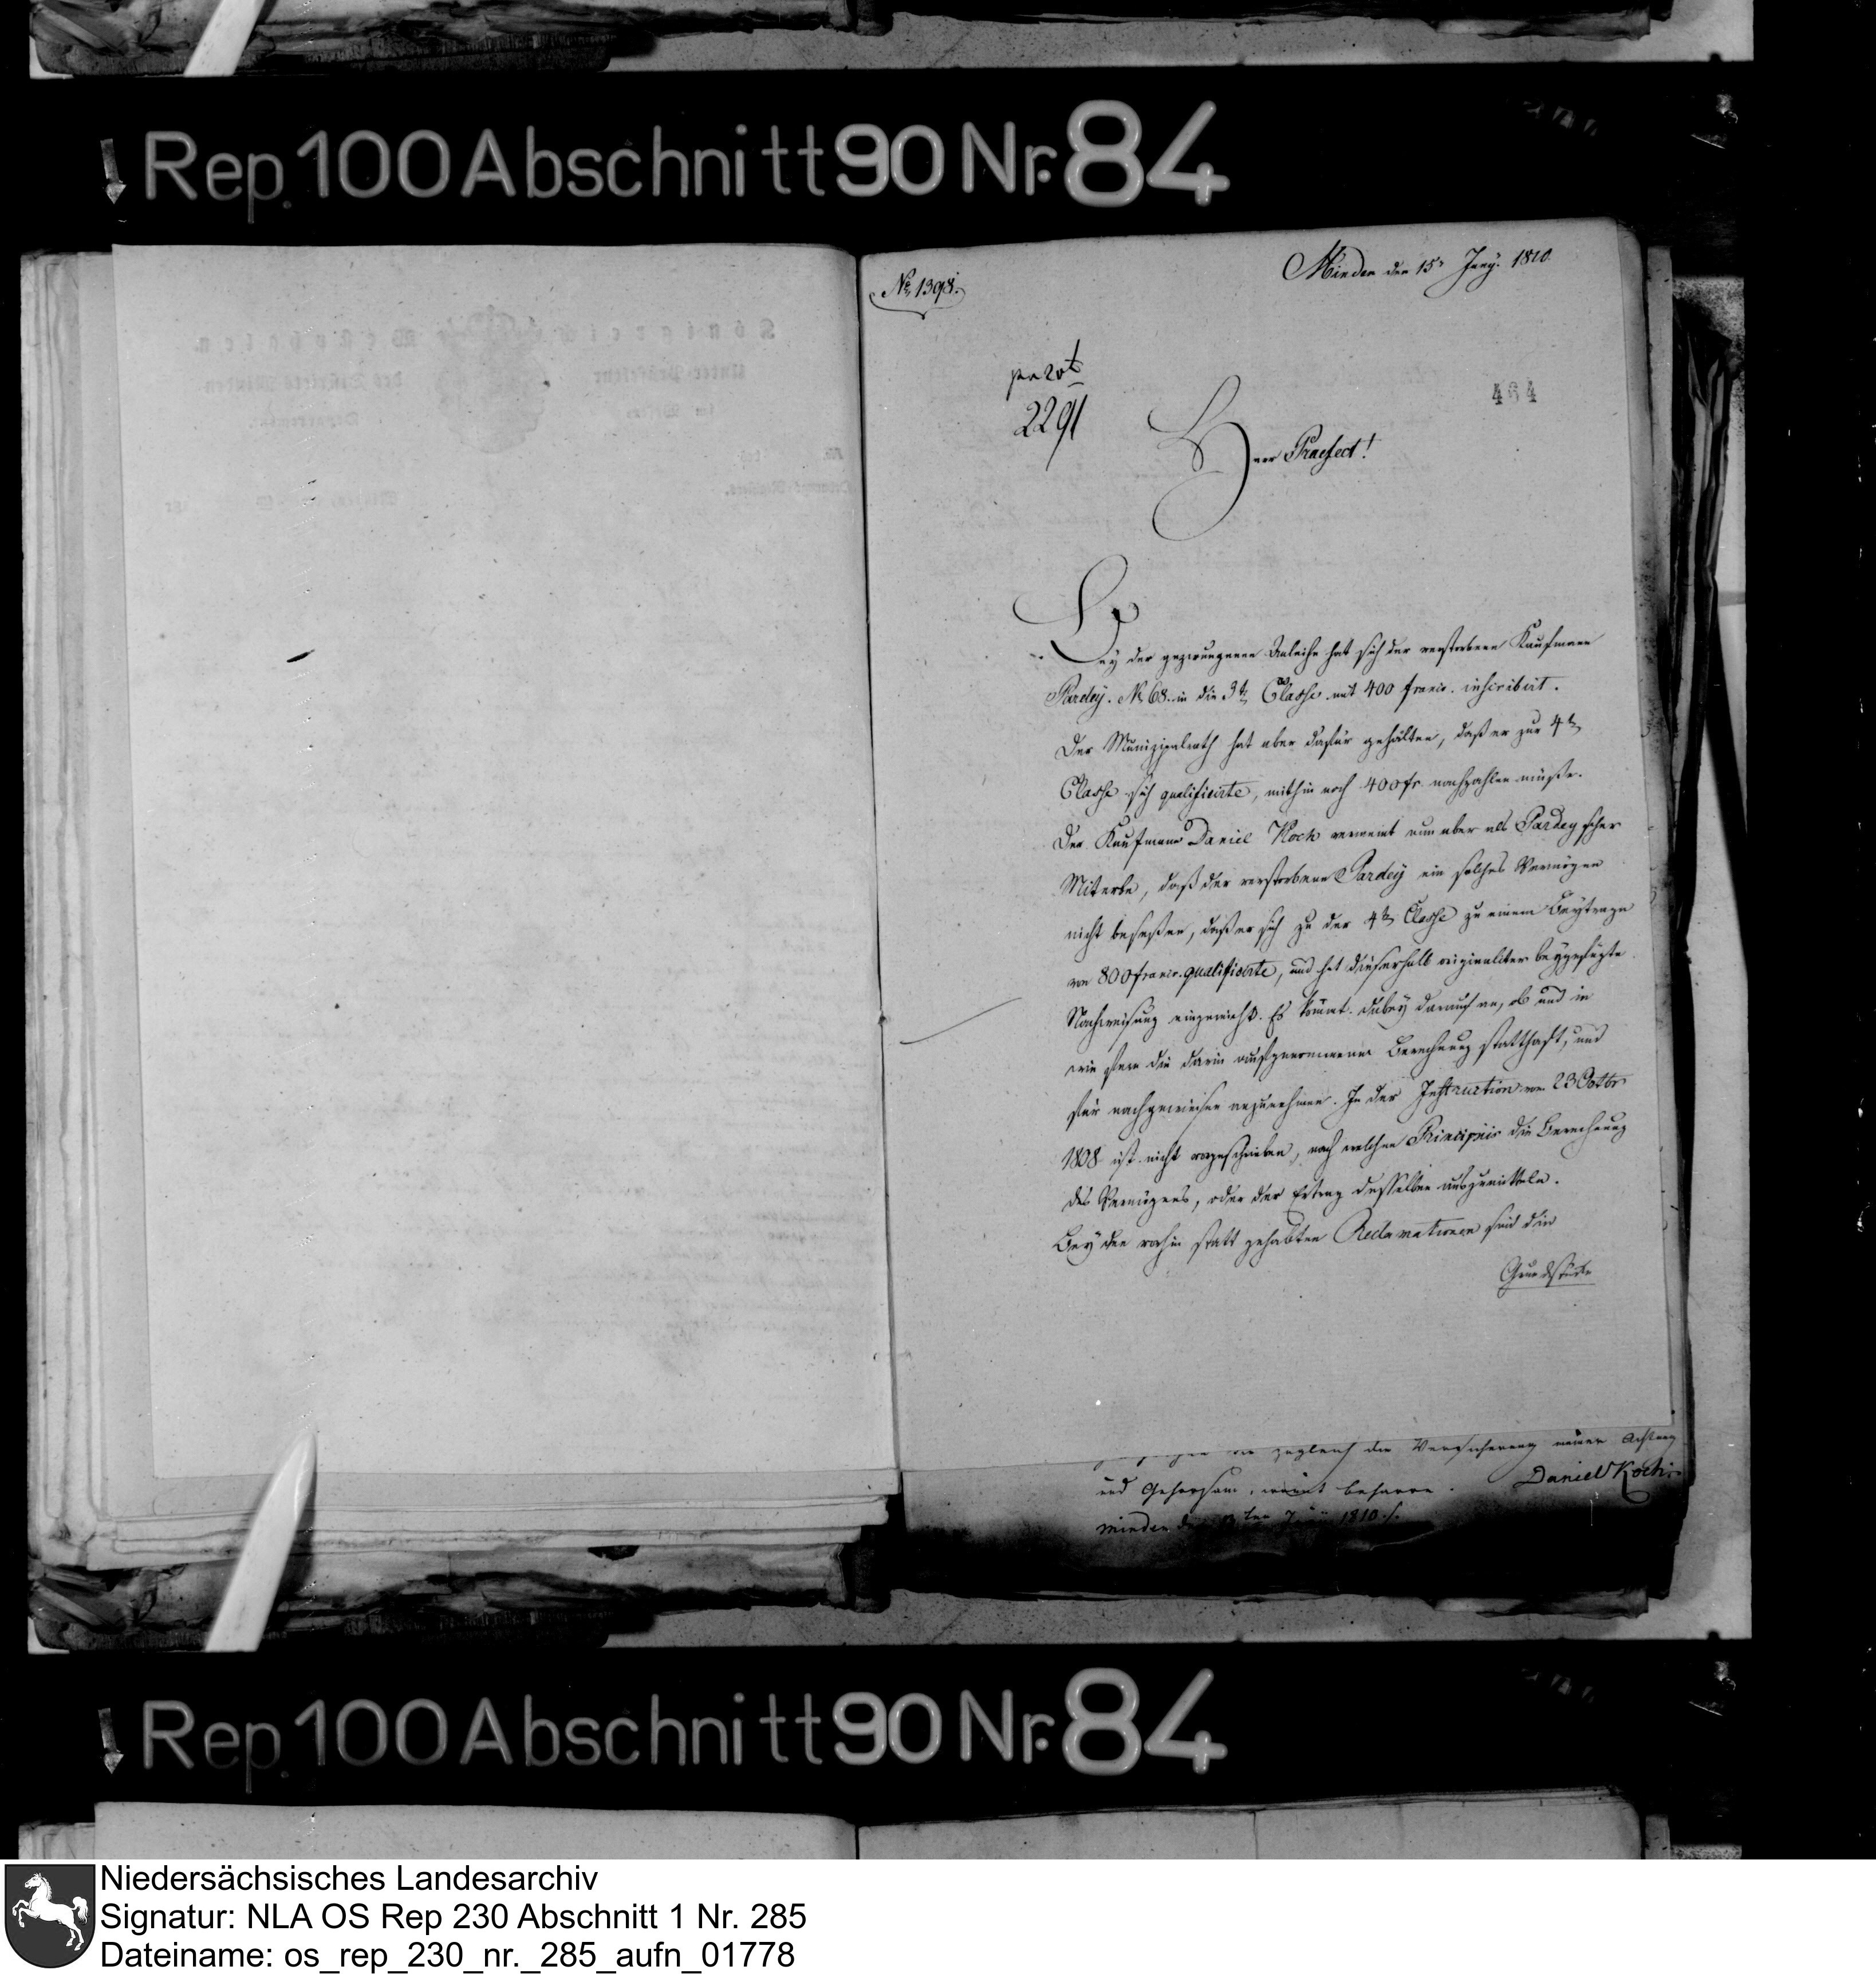 Rep. 100 Abschnitt 90 Nr. 84
No 1398.
Minden den 15n Juny. 1810
praes
2291
464
Herr Praefect!
Bey der gezwungenen Anleihe hat sich der verstorbene Kaufmann
Pardey. No 68. in die 3te Classe mit 400 franc. inscribirt.
Der Munizipalrath hat aber dafür gehalten, daß er zur 4ten
Classe sich qualificirte, mithin noch 400 fr. nachzahlen müße.
Der Kaufmann Daniel Koch vermeint nun aber als Pardeyscher
Miterbe, daß der verstorbene Pardey ein solches Vermögen
nicht beseßen, daß er sich zu der 4ten Classe zu einem Beytrage
von 800 franc. qualificirte, und hat dieserhalb originaliter beygefügte
Nachweisung eingereicht. Es kömmt dabey darauf an, ob und in
wie fern die darin aufgenommene Berechnung statthaft, und
für nachgewiesen anzunehmen. In der Instruction vom 23 Octbr
1808 ist nicht vorgeschrieben, nach welchen Principiis die Berechnung
des Vermögens, oder der Ertrag desselben auszumitteln.
Bey den vorhin statt gehabten Reclamationen sind die
Grundstücke
zugleich die Versicherung meiner Achtung
und Gehorsam, womit beharre.
Daniel Koch.
Minden den ten Juny 1810
Rep. 100 Abschnitt 90 Nr. 84
Niedersächsisches Landesarchiv
Signatur: NLA OS Rep 230 Abschnitt 1 Nr. 285
Dateiname: os_rep_230_nr._285_aufn_01778